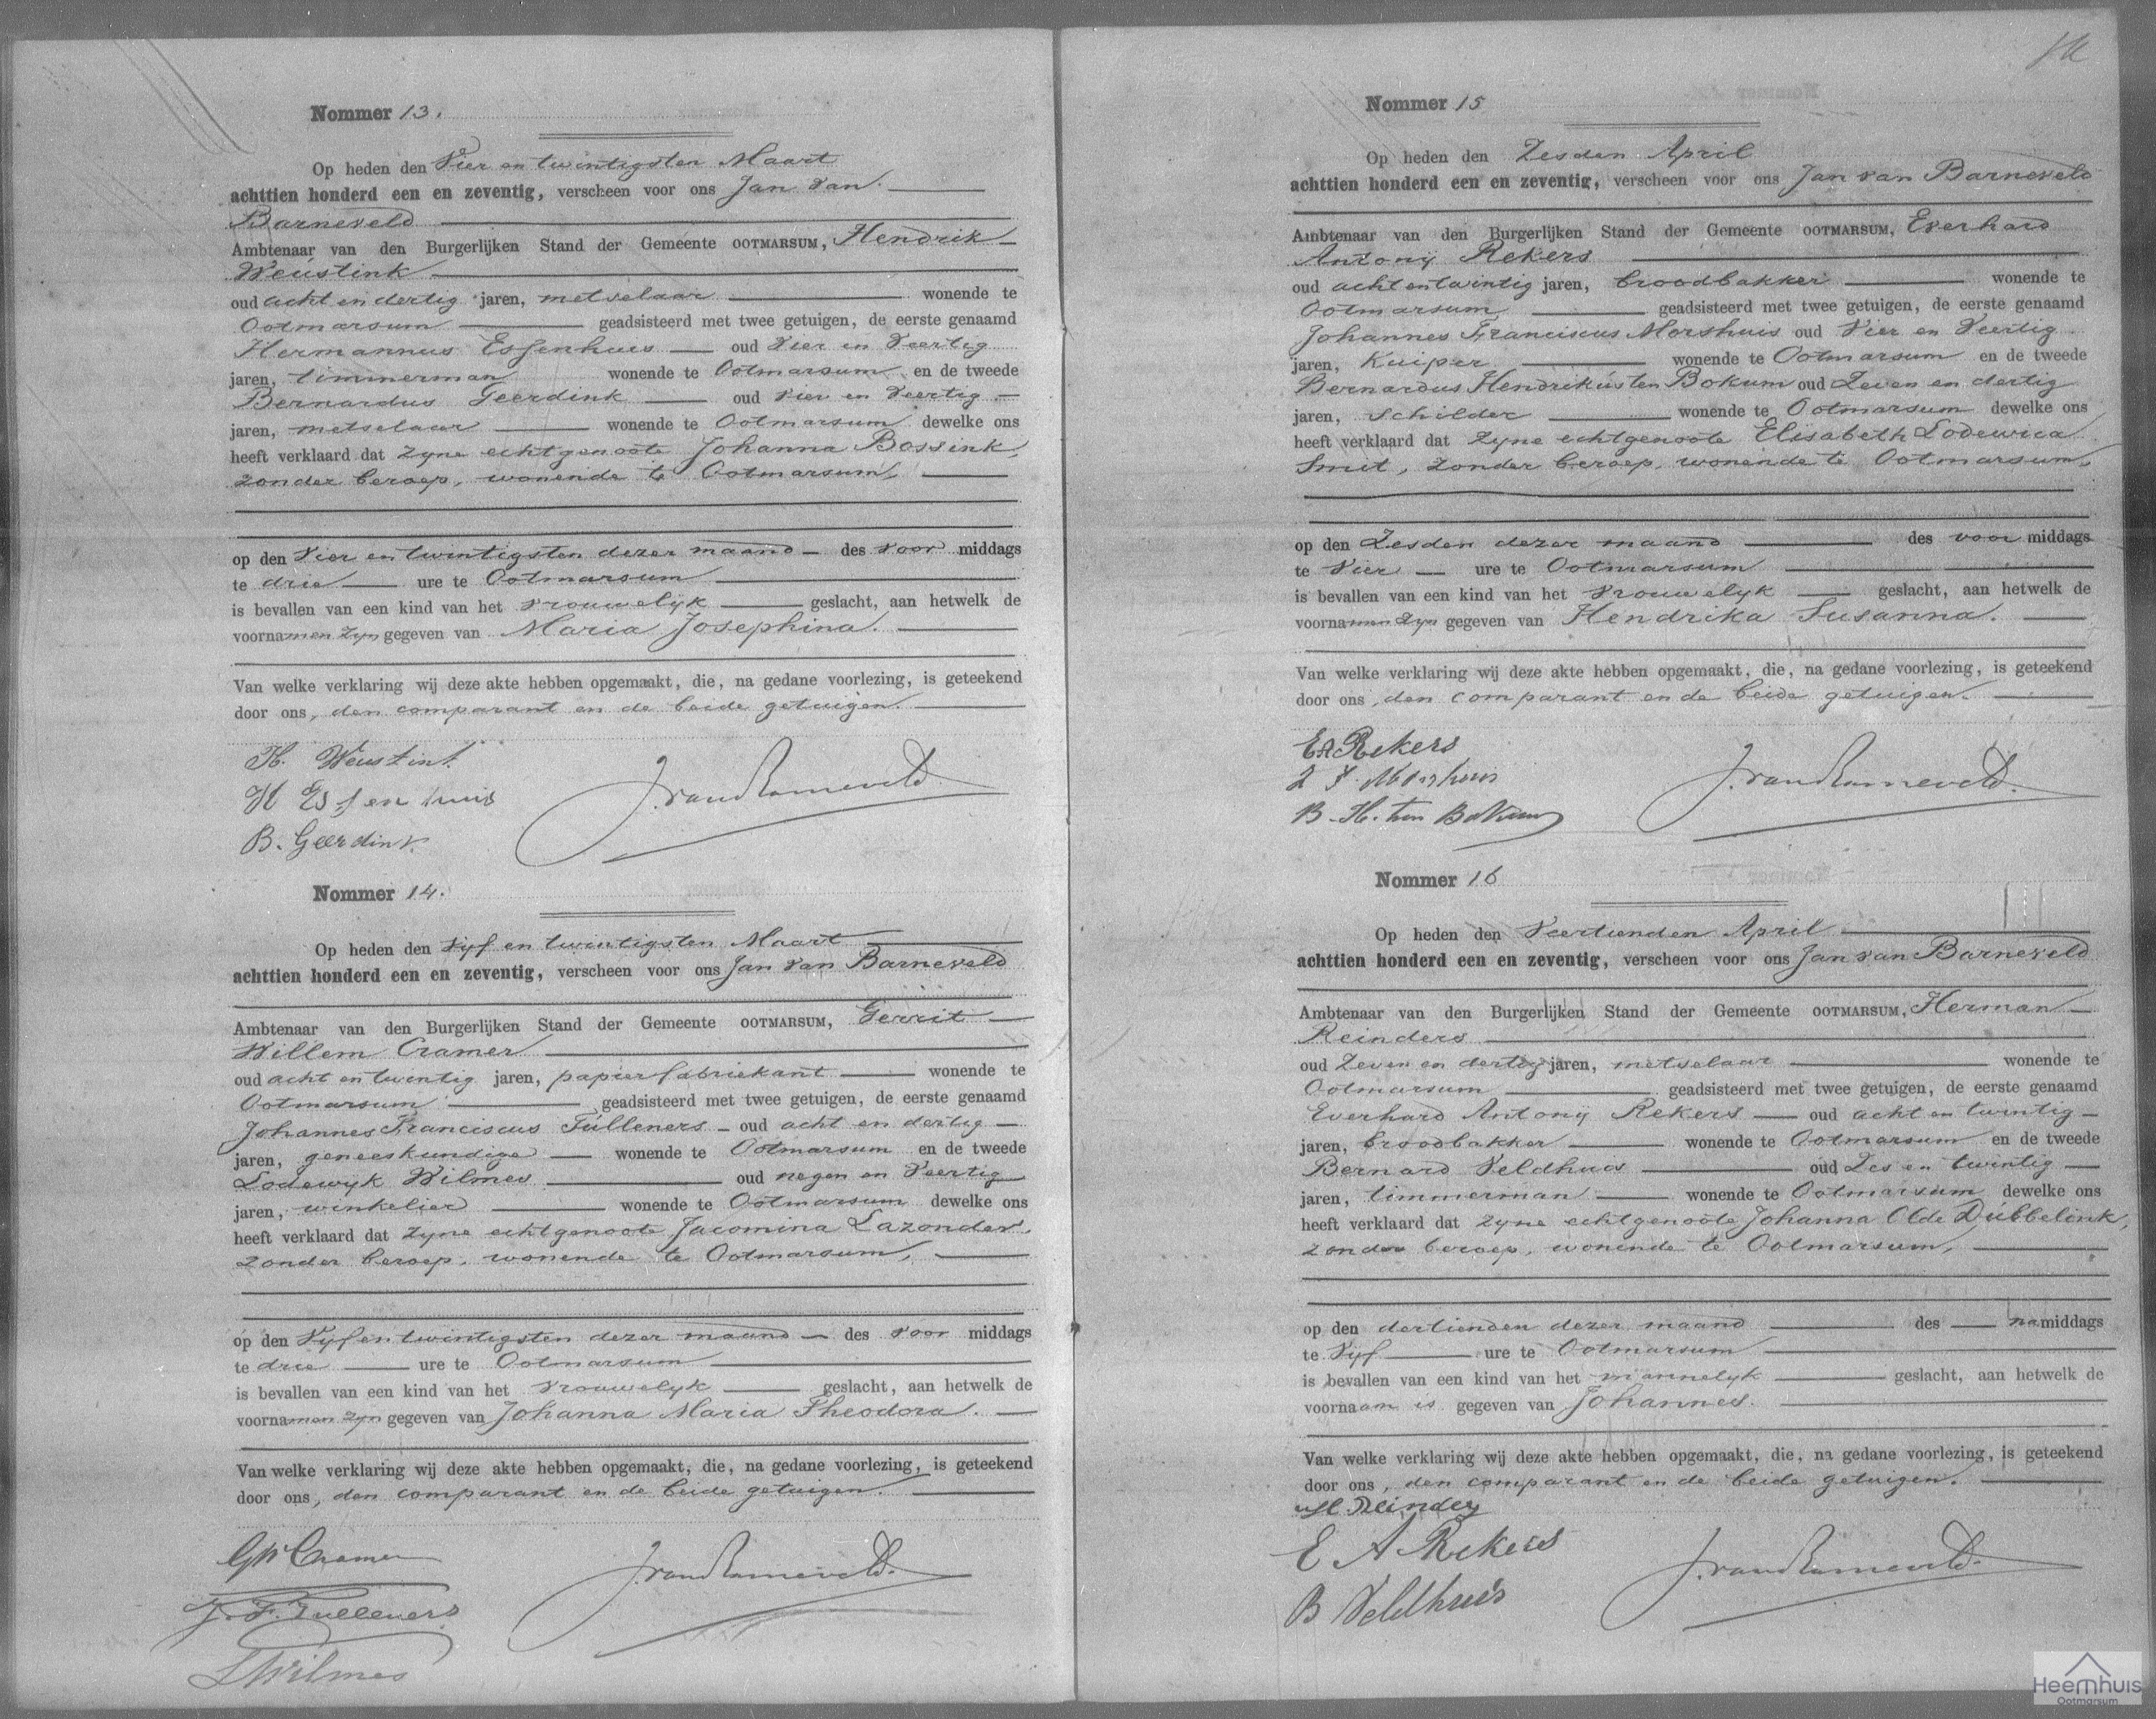 Nommer 13.
Op heden den Vier en twintigsten Maart
achttien honderd een en zeventig, verscheen voor ons Jan van
Barneveld
Ambtenaar van den Burgerlijken Stand der Gemeente OOTMARSUM, Hendrik
Weustink
oud acht en dertig jaren, metselaar wonende te
Ootmarsum geadsisteerd met twee getuigen, de eerste genaamd
Hermannus Essenhuis oud vier en veertig
jaren, timmerman wonende te Ootmarsum en de tweede
Bernardus Geerdink oud vier en veertig
jaren, metselaar wonende te Ootmarsum dewelke ons
heeft verklaard dat zyne echtgenoote Johanna Bossink,
zonder beroep, wonende te Ootmarsum,
op den vier en twintigsten dezer maand des voor middags
te drie ure te Ootmarsum
is bevallen van een kind van het vrouwelyk geslacht, aan hetwelk de
voornamen zyn gegeven van Maria Josephina.
Van welke verklaring wij deze akte hebben opgemaakt, die, na gedane voorlezing, is geteekend
door ons, den comparant en de beide getuigen.
H. Weustink
H Essenhuis
B. Geerdink
J. van Barneveld.
Nommer 14.
Op heden den vyf en twintigsten Maart
achttien honderd een en zeventig, verscheen voor ons Jan van Barneveld
Ambtenaar van den Burgerlijken Stand der Gemeente OOTMARSUM, Gerrit
Willem Cramer
oud acht en twintig jaren, papierfabriekant wonende te
Ootmarsum geadsisteerd met twee getuigen, de eerste genaamd
Johannes Franciscus Fülleners oud acht en dertig
jaren, geneeskundige wonende te Ootmarsum en de tweede
Lodewyk Wilmes oud negen en veertig
jaren, winkelier wonende te Ootmarsum dewelke ons
heeft verklaard dat zyne echtgenoote Jacomina Lazonder,
zonder beroep, wonende te Ootmarsum,
op den vyf en twintigsten dezer maand des voor middags
te drie ure te Ootmarsum
is bevallen van een kind van het vrouwelyk geslacht, aan hetwelk de
voornamen zyn gegeven van Johanna Maria Theodora.
Van welke verklaring wij deze akte hebben opgemaakt, die, na gedane voorlezing, is geteekend
door ons, den comparant en de beide getuigen.
GW Cramer
J. F. Fulleners
L Wilmes
J. van Barneveld.
Nommer 15
Op heden den Zesden April
achttien honderd een en zeventig, verscheen voor ons Jan van Barneveld
Ambtenaar van den Burgerlijken Stand der Gemeente OOTMARSUM, Everhard
Antonij Rekers
oud acht en twintig jaren, broodbakker wonende te
Ootmarsum geadsisteerd met twee getuigen, de eerste genaamd
Johannes Franciscus Morshuis oud vier en veertig
jaren, Kuiper wonende te Ootmarsum en de tweede
Bernardus Hendrikus ten Bokum oud zeven en dertig
jaren, Schilder wonende te Ootmarsum dewelke ons
heeft verklaard dat zyne echtgenoote Elisabeth Lodewica
Smit, zonder beroep, wonende te Ootmarsum,
op den Zesden dezer maand des voor middags
te vier ure te Ootmarsum
is bevallen van een kind van het vrouwelyk geslacht, aan hetwelk de
voornamen zyn gegeven van Hendrika Susanna.
Van welke verklaring wij deze akte hebben opgemaakt, die, na gedane voorlezing, is geteekend
door ons, den comparant en de beide getuigen.
EA Rekers
F. Morshuis
B. H. ten Bokum
J. van Barneveld.
Nommer 16
Op heden den Veertienden April
achttien honderd een en zeventig, verscheen voor ons Jan van Barneveld
Ambtenaar van den Burgerlijken Stand der Gemeente OOTMARSUM, Herman
Reinders
oud zeven en dertig jaren, metselaar wonende te
Ootmarsum geadsisteerd met twee getuigen, de eerste genaamd
Everhard Antonij Rekers oud acht en twintig
jaren, broodbakker wonende te Ootmarsum en de tweede
Bernard Veldhuis oud zes en twintig
jaren, timmerman wonende te Ootmarsum dewelke ons
heeft verklaard dat zyne echtgenoote Johanna Olde Dubbelink,
zonder beroep, wonende te Ootmarsum,
op den dertienden dezer maand des namiddags
te vyf ure te Ootmarsum
is bevallen van een kind van het mannelyk geslacht, aan hetwelk de
voornaam is gegeven van Johannes.
Van welke verklaring wij deze akte hebben opgemaakt, die, na gedane voorlezing, is geteekend
door ons, den comparant en de beide getuigen.
H. Reinders
E A Rekers
B Veldhuis
J. van Barneveld.
Heemhuis
Ootmarsum